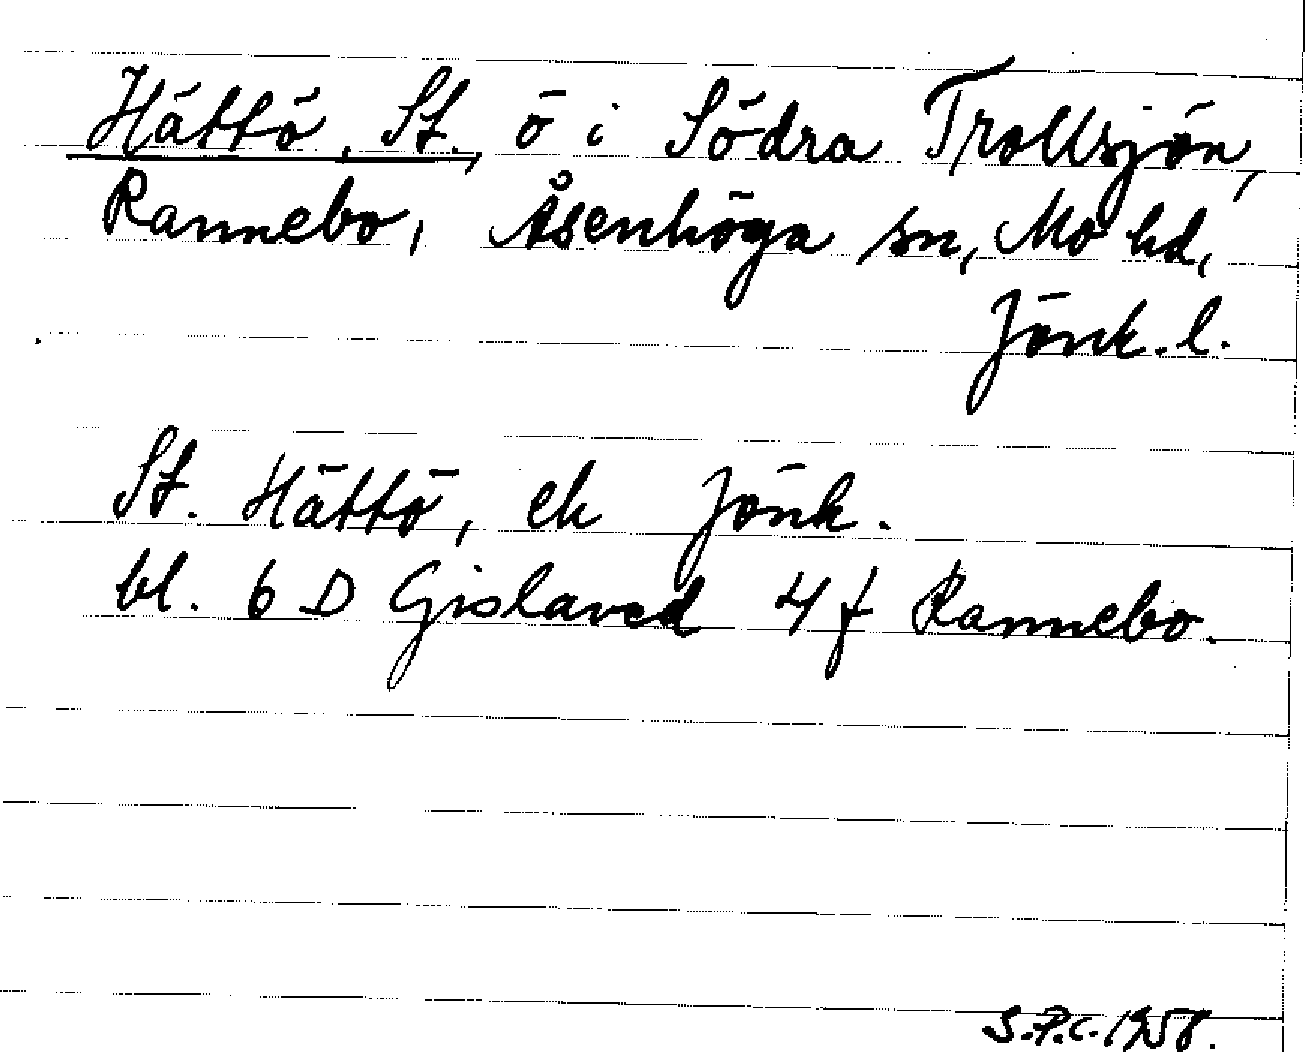 Hättö, St., ö i Södra Trollsjön,
Rannebo, Åsenhöga sn, Mo hd,
Jönk. l.
St. Hättö, ek Jönk.
bl. 6 D Gislaved 4 f Rannebo.
S.P.C. 1958.